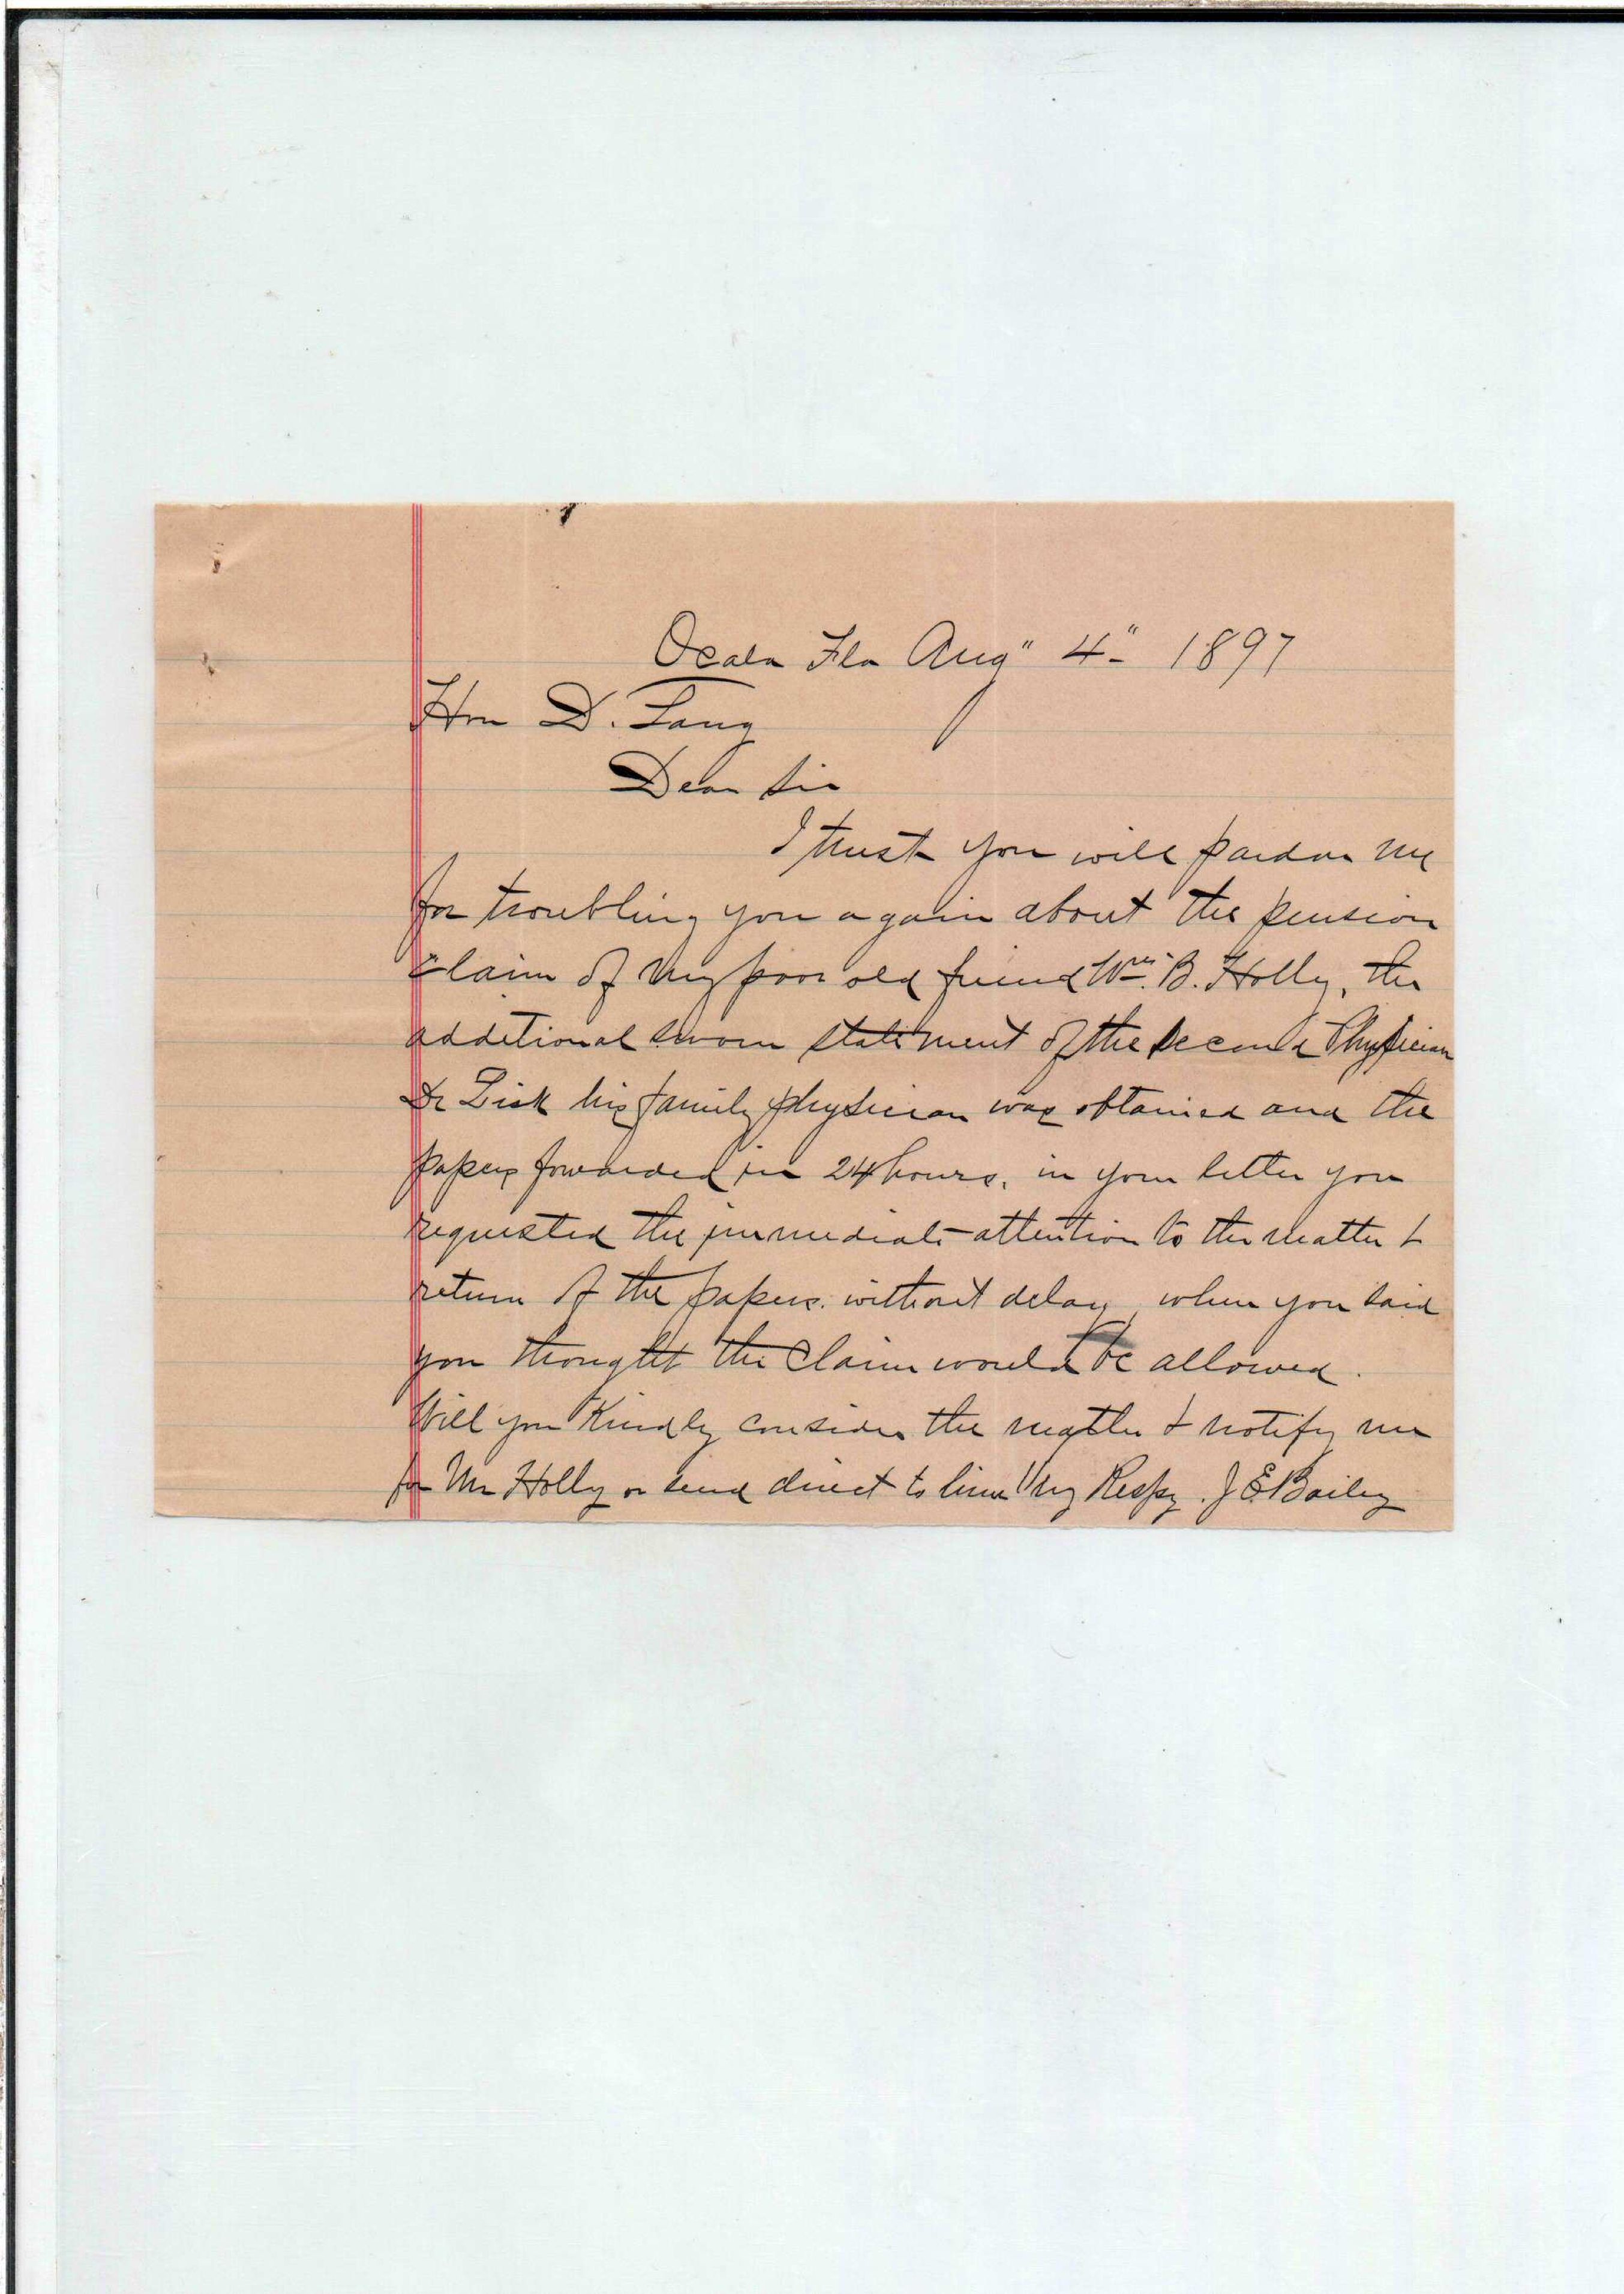 Ocala Fla Aug" 4" 1897
Hon D. Lang
Dear Sir
I trust you will pardon me
for troubling you again about the pension
claim of my poor old friend Wm. B. Holly, the
additional sworn statement of the second Physician
Dr Lisk his family physician was obtained and the
papers forwarded in 24 hours, in your letter you
requested the immediate attention to the matter &
return of the papers without delay, when you said
you thought the claim would be allowed.
Will you Kindly consider the matter & notify me
for Mr Holly or send direct to him Vry Respy. J E Bailey